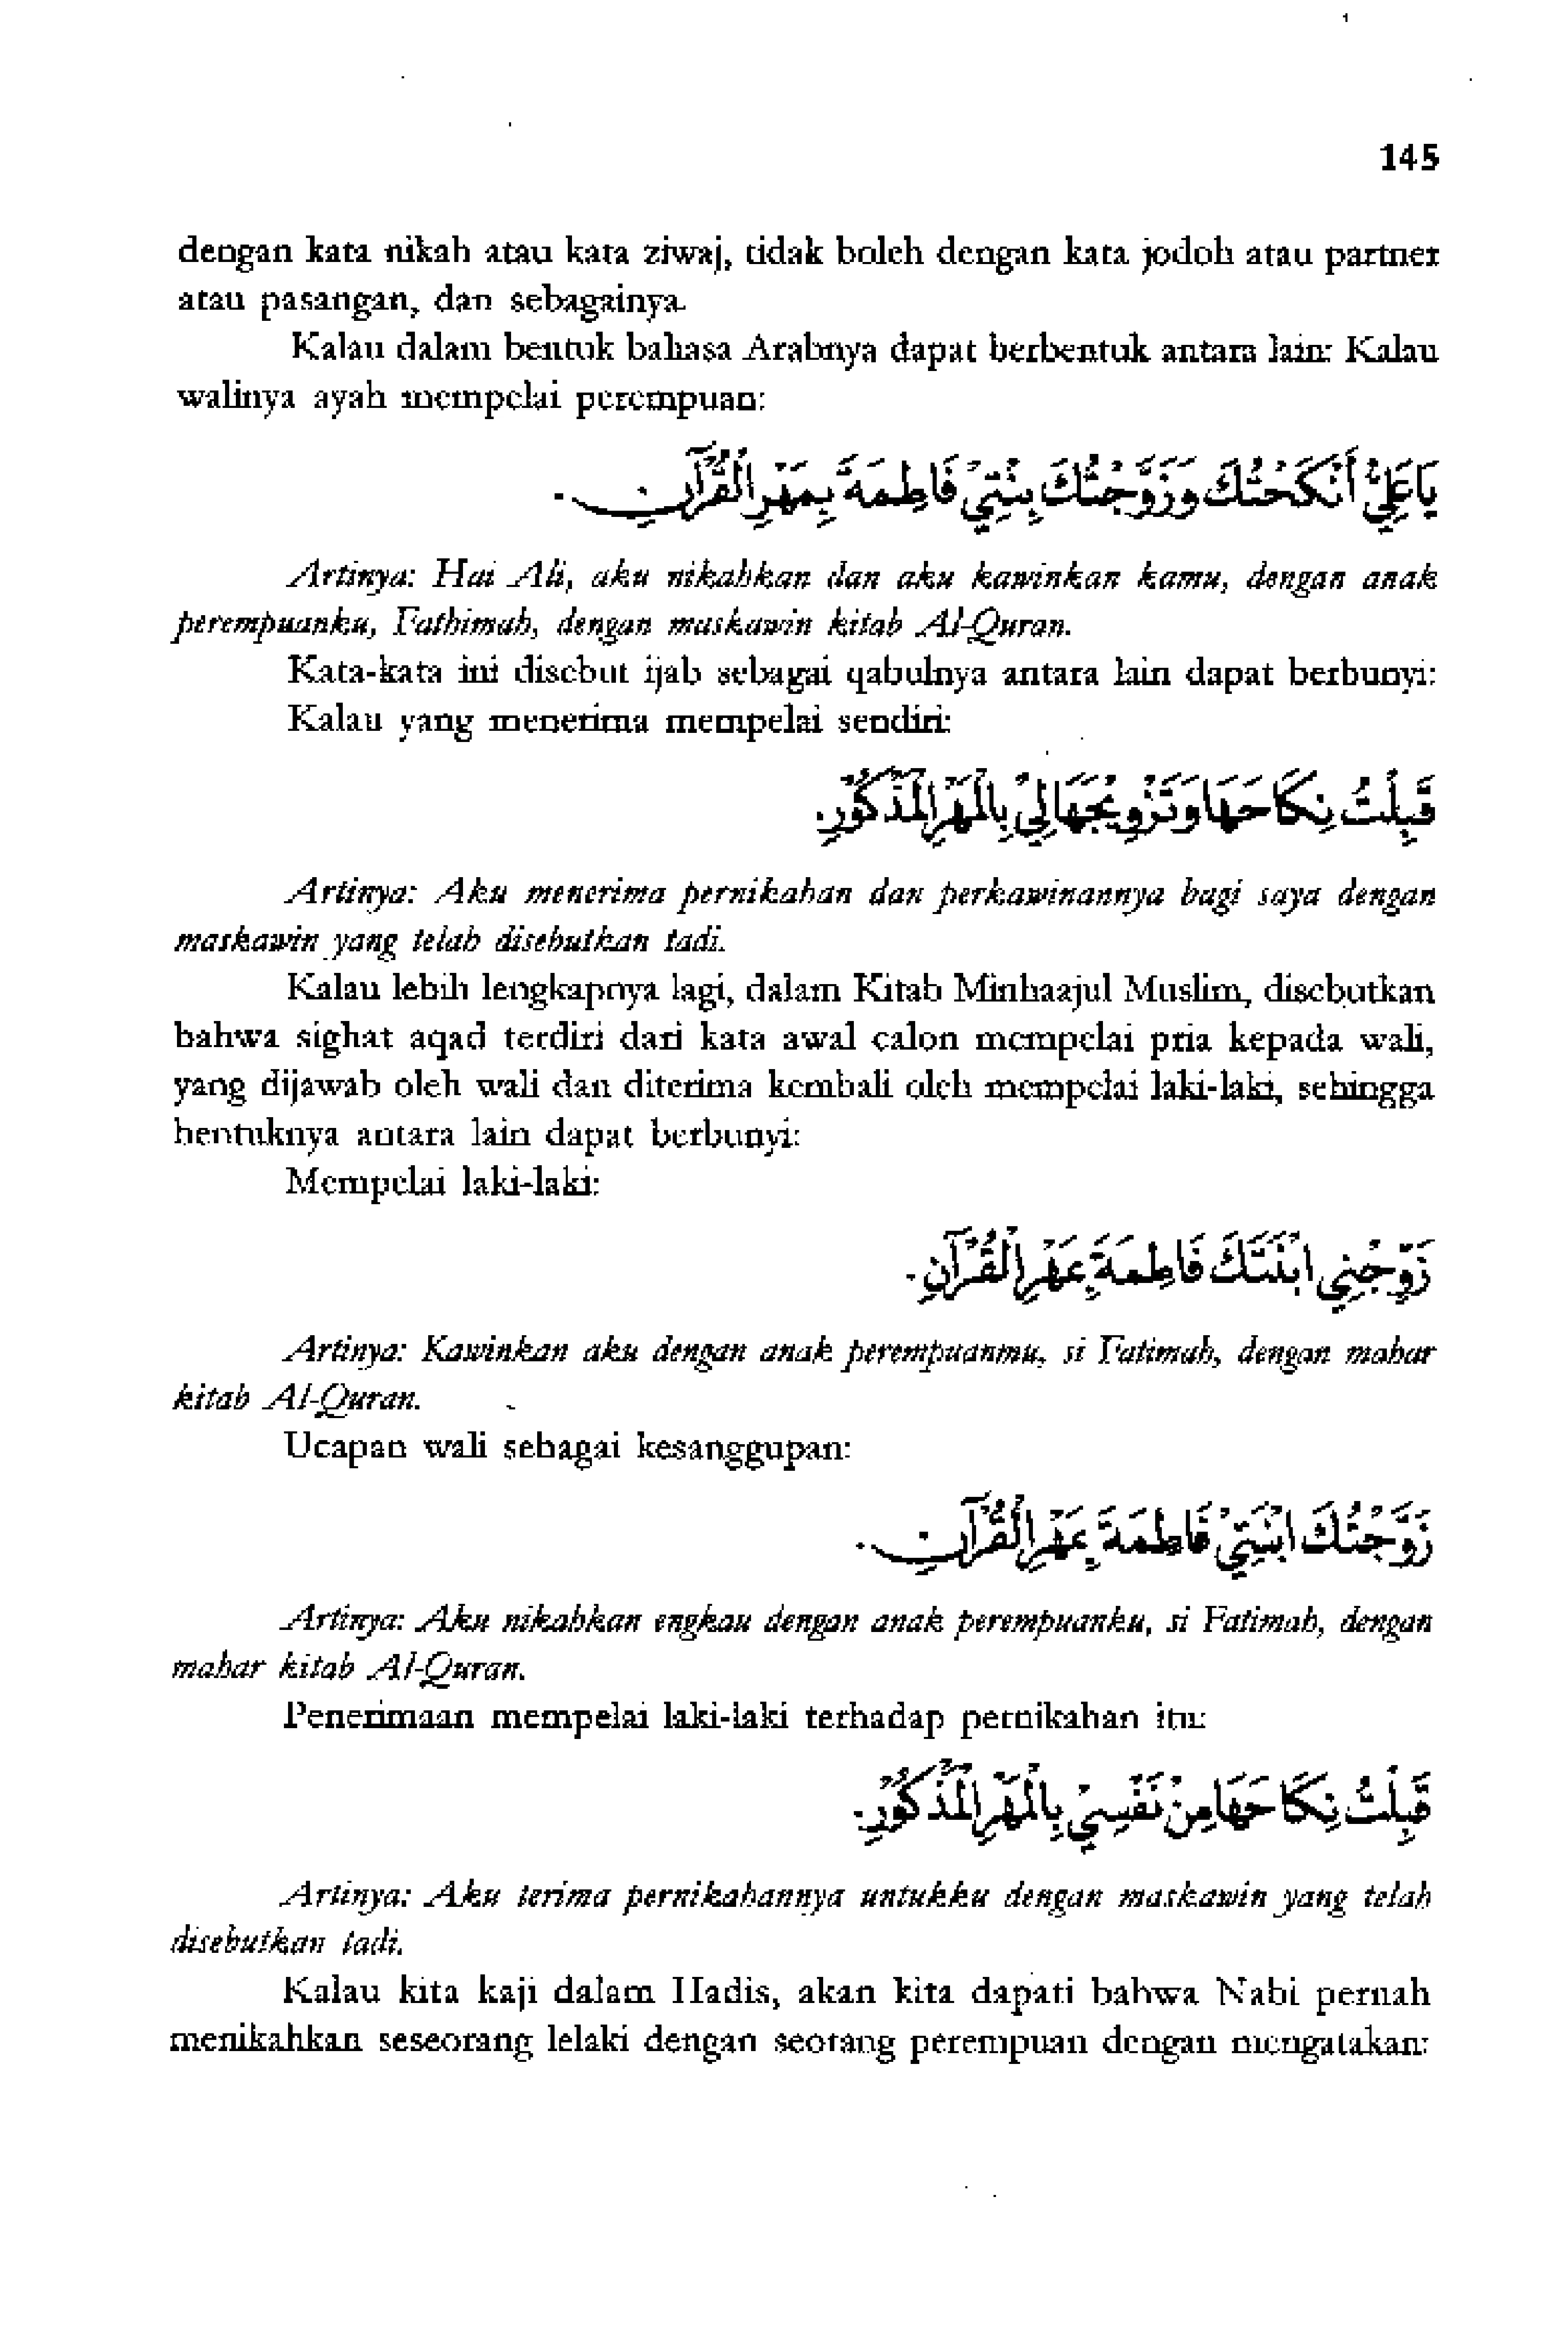 145
dengan kata nikah atau kata ziwaj, tidak boleh dengan kata jodoh atau partner
atau pasangan, dan sebagainya.
Kalau dalam bentuk bahasa Arabnya dapat berbentuk antara lain: Kalau
walinya ayah mempelai perempuan:
يَاعَلِيُّ أَنْكَحْتُكَ وَزَوَّجْتُكَ بِنْتِيْ فَاطِمَةَ بِمَهْرِ الْقُرْآنِ.
Artinya: Hai Ali, aku nikahkan dan aku kawinkan kamu, dengan anak
perempuanku, Fathimah, dengan maskawin kitab Al-Quran.
Kata-kata ini disebut ijab sebagai qabulnya antara lain dapat berbunyi:
Kalau yang menerima mempelai sendiri:
قَبِلْتُ نِكَاحَهَا وَتَزْوِيْجَهَا لِيْ بِالْمَهْرِ الْمَذْكُوْرِ.
Artinya: Aku menerima pernikahan dan perkawinannya bagi saya dengan
maskawin yang telah disebutkan tadi.
Kalau lebih lengkapnya lagi, dalam Kitab Minhaajul Muslim, disebutkan
bahwa sighat aqad terdiri dari kata awal calon mempelai pria kepada wali,
yang dijawab oleh wali dan diterima kembali oleh mempelai laki-laki, sehingga
bentuknya antara lain dapat berbunyi:
Mempelai laki-laki:
زَوِّجْنِي ابْنَتَكَ فَاطِمَةَ بِمَهْرِ الْقُرْآنِ.
Artinya: Kawinkan aku dengan anak perempuanmu, si Fatimah, dengan mahar
kitab Al-Quran.
Ucapan wali sebagai kesanggupan:
زَوَّجْتُكَ ابْنَتِيْ فَاطِمَةَ بِمَهْرِ الْقُرْآنِ.
Artinya: Aku nikahkan engkau dengan anak perempuanku, si Fatimah, dengan
mahar kitab Al-Quran.
Penerimaan mempelai laki-laki terhadap pernikahan itu:
قَبِلْتُ نِكَاحَهَا مِنْ نَفْسِيْ بِالْمَهْرِ الْمَذْكُوْرِ.
Artinya: Aku terima pernikahannya untukku dengan maskawin yang telah
disebutkan tadi.
Kalau kita kaji dalam Hadis, akan kita dapati bahwa Nabi pernah
menikahkan seseorang lelaki dengan seorang perempuan dengan mengatakan: